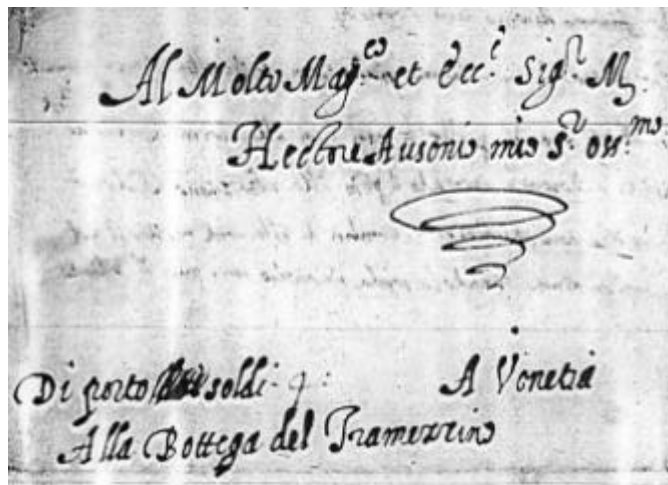 Al Molto Mag.co et Ecc.te Sig.r M.
Hectore Ausonio mio S.r oss.mo
Di porto soldi
A Venetia
Alla Bottega del Tramezzino